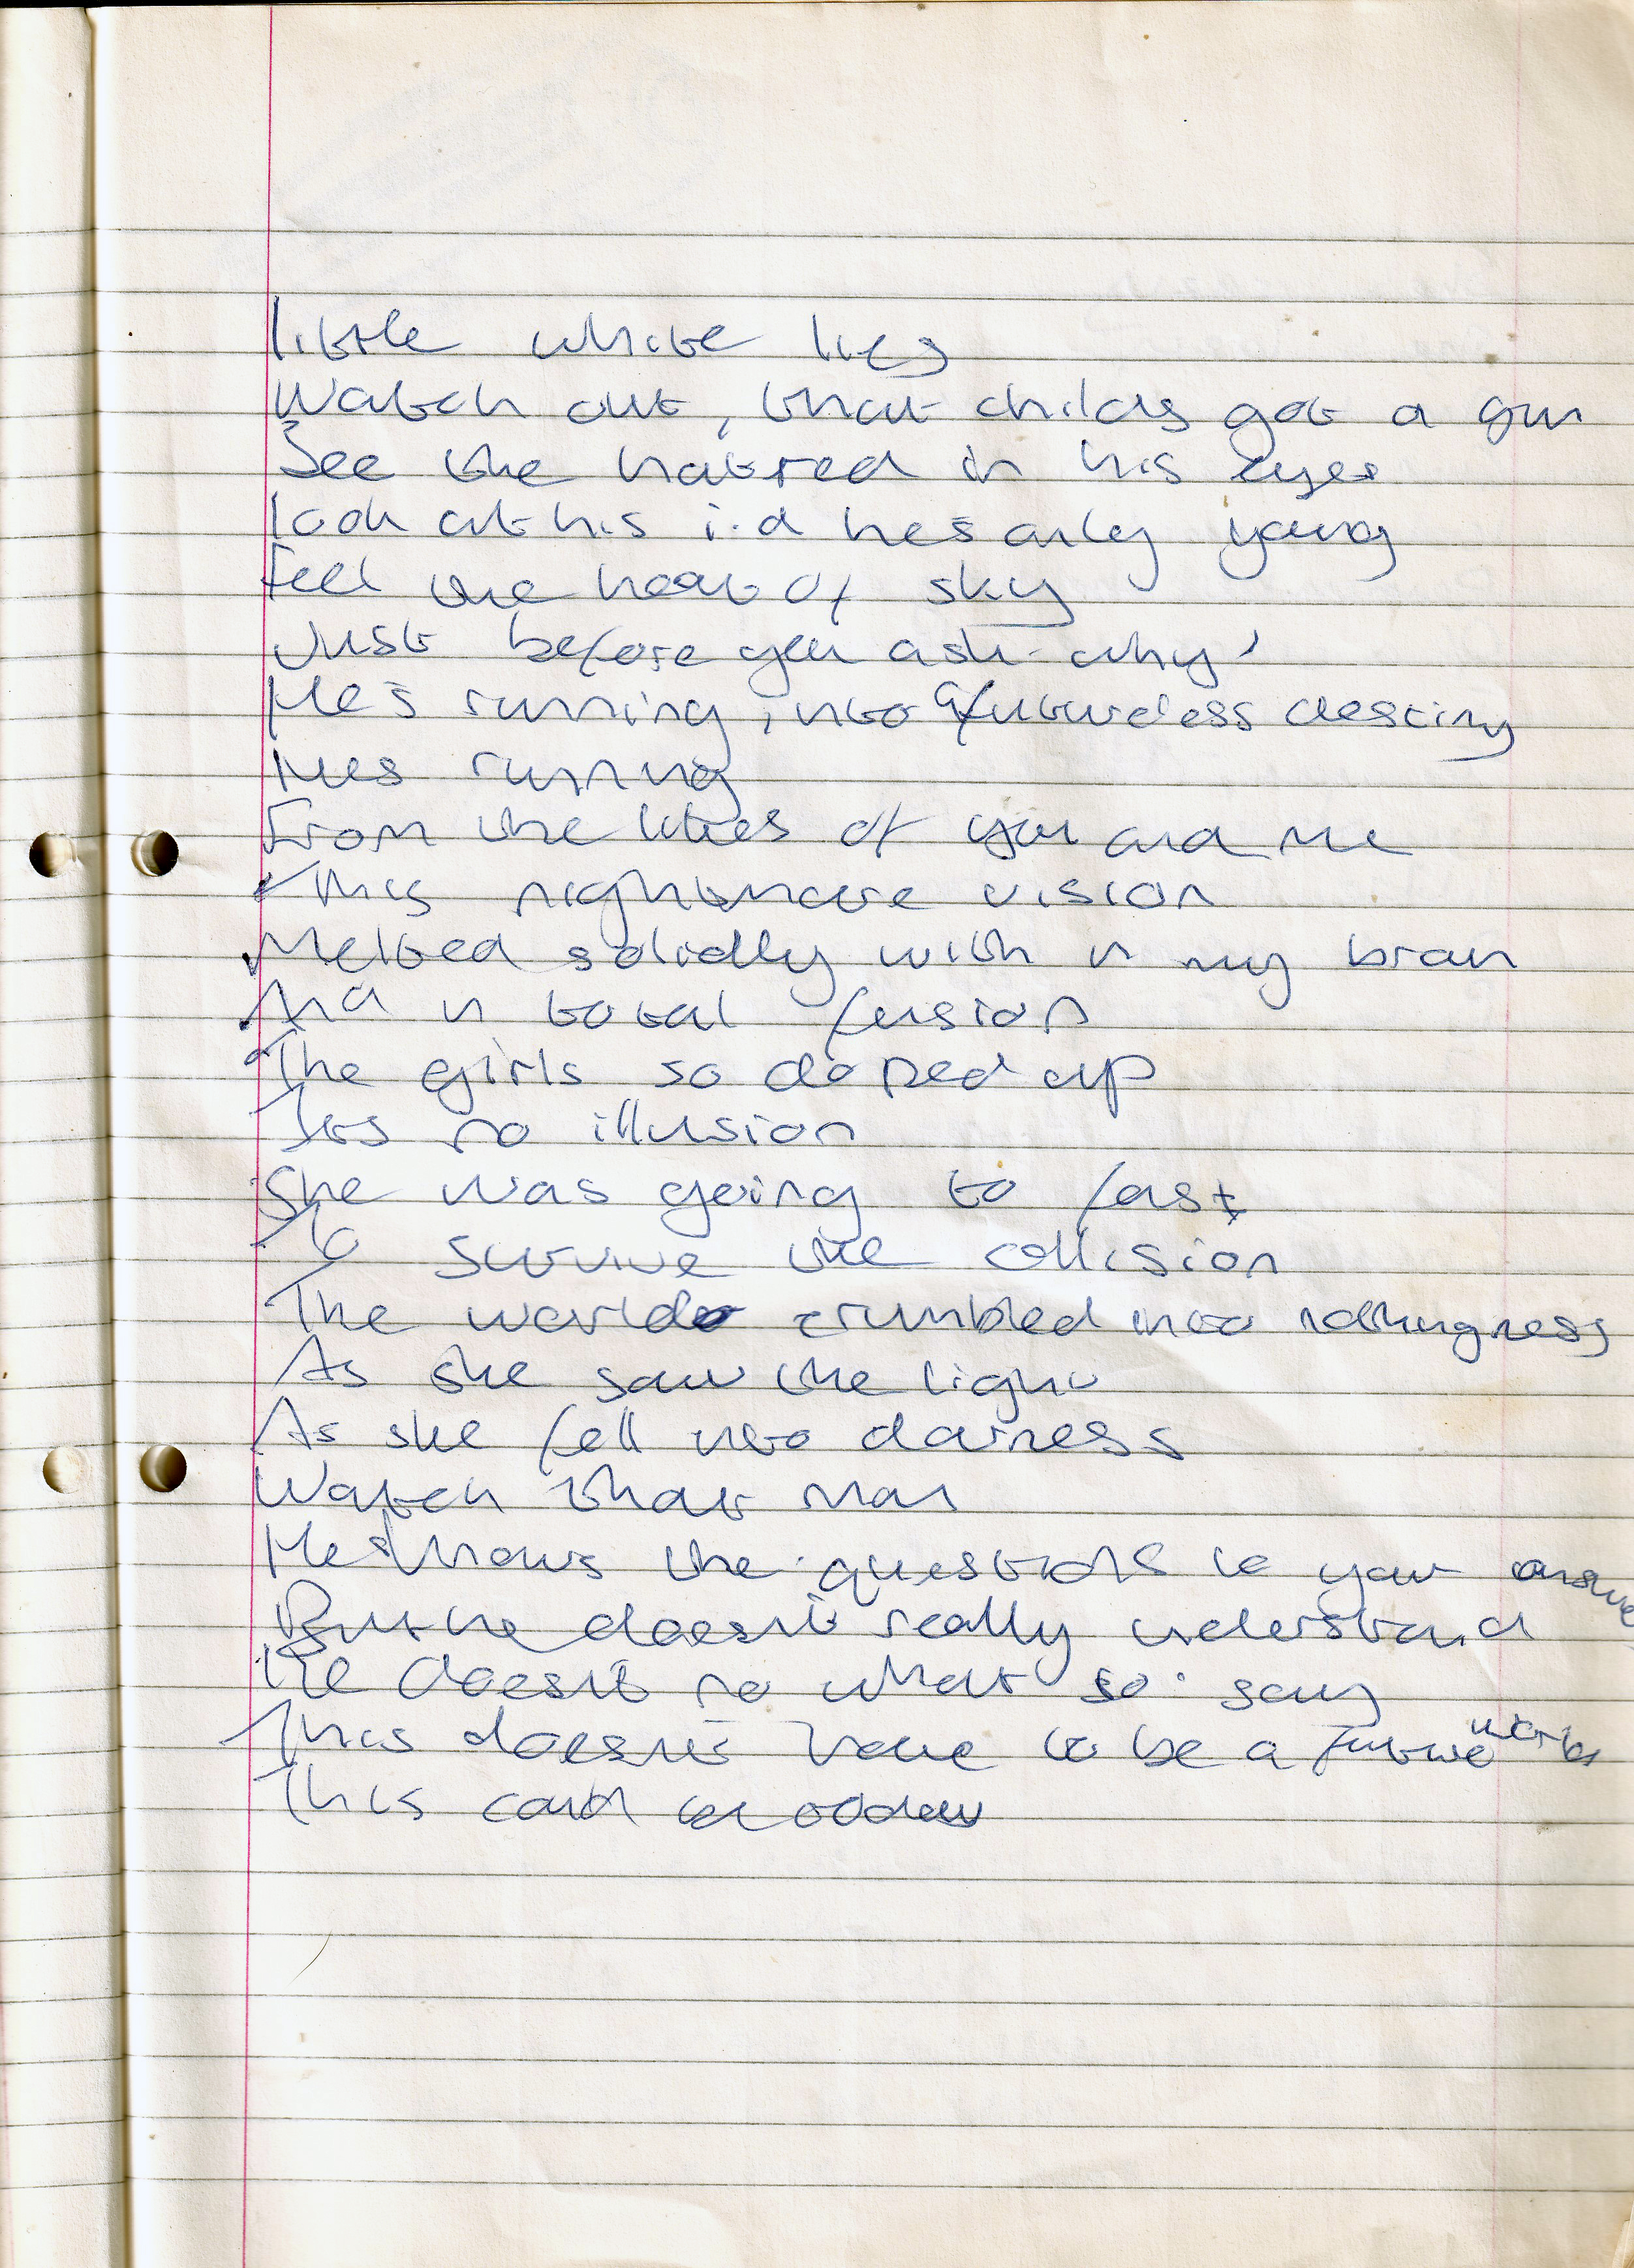 little white lies
Watch out, that childs got a gun
See the hatred in his eyes
look at his i.d hes only young
Feel the heat of sky
Just before you ask why'
He's running, into a futureless destiny
Hes running
From the likes of you and me
This nightmare vision
Melted solidly with in my brain
And in total fusion
The girls so doped up
Its no illusion
She was going to fast
To survive the collision
The world crumbled into nothingness
As she saw the light
As she fell into darness
Watch that man
He knows the questions to your answe
But he doesn't really understand
He doesnt no what to say
This doesn't have to be a future
This could be